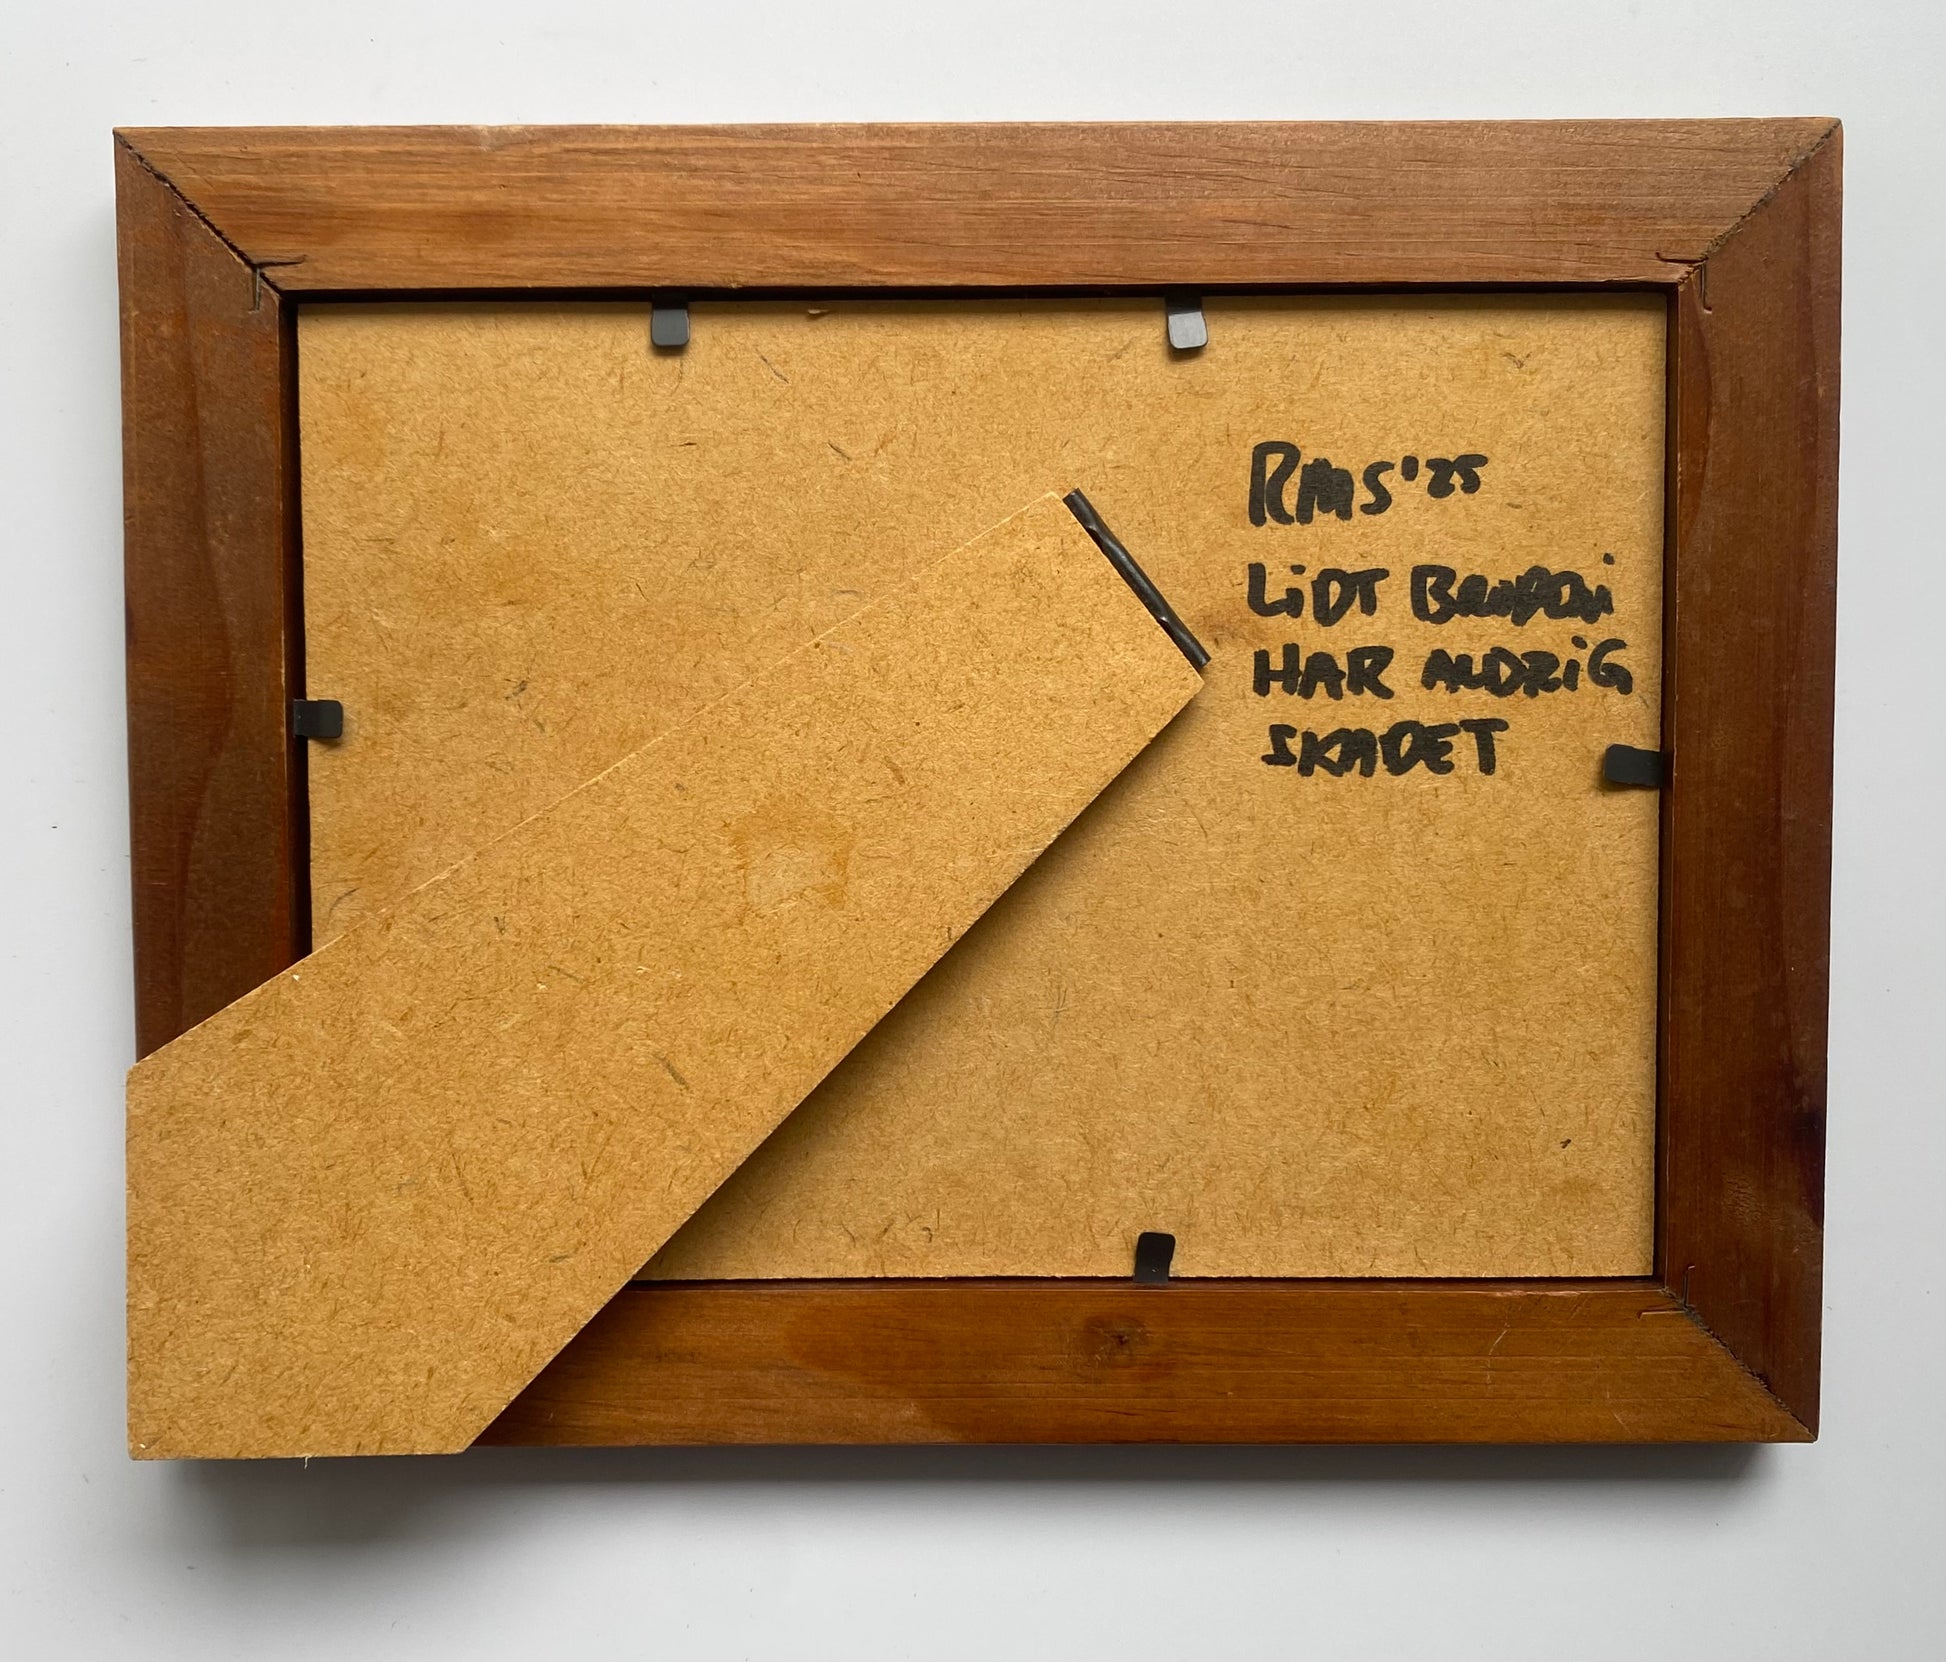 RMS'25
LiDT
HAR ALDRiG
SKADET